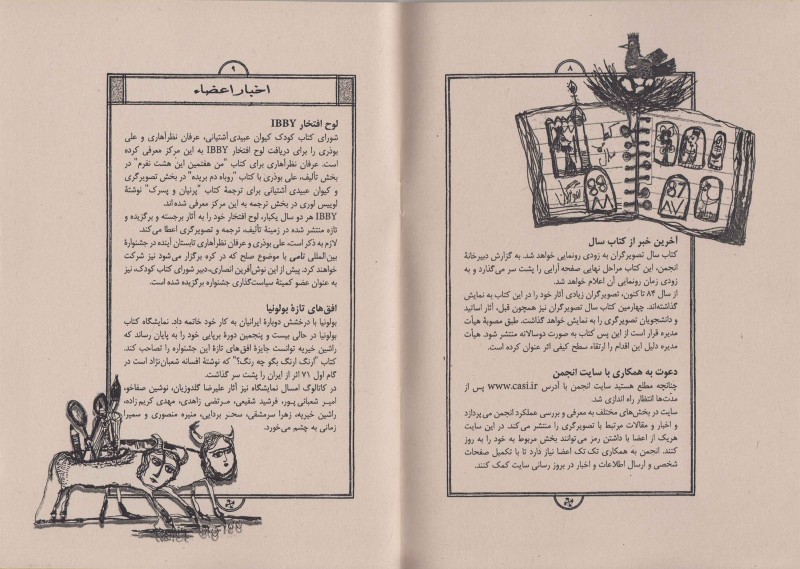 ۸
88
۸۸
87
۸۷
آخرین خبر از کتاب سال
کتاب سال تصویرگران به زودی رونمایی خواهد شد. به گزارش دبیرخانهٔ
انجمن، این کتاب مراحل نهایی صفحه آرایی را پشت سر می‌گذارد و به
زودی زمان رونمایی آن اعلام خواهد شد.
از سال ۸۴ تاکنون، تصویرگران زیادی آثار خود را در این کتاب به نمایش
گذاشته‌اند. چهارمین کتاب سال تصویرگران نیز همچون قبل، آثار اساتید
و دانشجویان تصویرگری را به نمایش خواهد گذاشت. طبق مصوبهٔ هیأت
مدیره قرار است از این پس کتاب به صورت دوسالانه منتشر شود. هیأت
مدیره دلیل این اقدام را ارتقاء سطح کیفی اثر عنوان کرده است.
دعوت به همکاری با سایت انجمن
چنانچه مطلع هستید سایت انجمن با آدرس www.casi.ir پس از
مدت‌ها انتظار راه اندازی شد.
سایت در بخش‌های مختلف به معرفی و بررسی عملکرد انجمن می‌پردازد
و اخبار و مقالات مرتبط با تصویرگری را منتشر می‌کند. در این سایت
هریک از اعضا با داشتن رمز می‌توانند بخش مربوط به خود را به روز
کنند. انجمن به همکاری تک تک اعضا نیاز دارد تا با تکمیل صفحات
شخصی و ارسال اطلاعات و اخبار در بروز رسانی سایت کمک کنند.
۹
اخبار اعضاء
لوح افتخار IBBY
شورای کتاب کودک کیوان عبیدی آشتیانی، عرفان نظرآهاری و علی
بوذری را برای دریافت لوح افتخار IBBY به این مرکز معرفی کرده
است. عرفان نظرآهاری برای کتاب "من هفتمین این هشت نفرم" در
بخش تألیف، علی بوذری با کتاب "روباه دم بریده" در بخش تصویرگری
و کیوان عبیدی آشتیانی برای ترجمهٔ کتاب "پرنیان و پسرک" نوشتهٔ
لوییس لوری در بخش ترجمه به این مرکز معرفی شده‌اند.
IBBY هر دو سال یکبار، لوح افتخار خود را به آثار برجسته و برگزیده و
تازه منتشر شده در زمینهٔ تألیف، ترجمه و تصویرگری اعطا می‌کند.
لازم به ذکر است، علی بوذری و عرفان نظرآهاری تابستان آینده در جشنوارهٔ
بین‌المللی نامی با موضوع صلح که در کره برگزار می‌شود نیز شرکت
خواهند کرد. پیش از این نوش‌آفرین انصاری، دبیر شورای کتاب کودک، نیز
به عنوان عضو کمیتهٔ سیاست‌گذاری جشنواره برگزیده شده است.
افق‌های تازهٔ بولونیا
بولونیا با درخشش دوبارهٔ ایرانیان به کار خود خاتمه داد. نمایشگاه کتاب
بولونیا در حالی بیست و پنجمین دورهٔ برپایی خود را به پایان رساند که
راشین خیریه توانست جایزهٔ افق‌های تازهٔ این جشنواره را تصاحب کند.
کتاب "ارنگ ارنگ بگو چه رنگ؟" که نوشتهٔ افسانه شعبان‌نژاد است در
گام اول ۷۱ اثر از ایران را پشت سر گذاشت.
در کاتالوگ امسال نمایشگاه نیز آثار علیرضا گلدوزیان، نوشین صفاخو،
امیر شعبانی پور، فرشید شفیعی، مرتضی زاهدی، مهدی کریم زاده،
راشین خیریه، زهرا سرمشقی، سحر بردایی، منیره منصوری و سمیرا
زمانی به چشم می‌خورد.